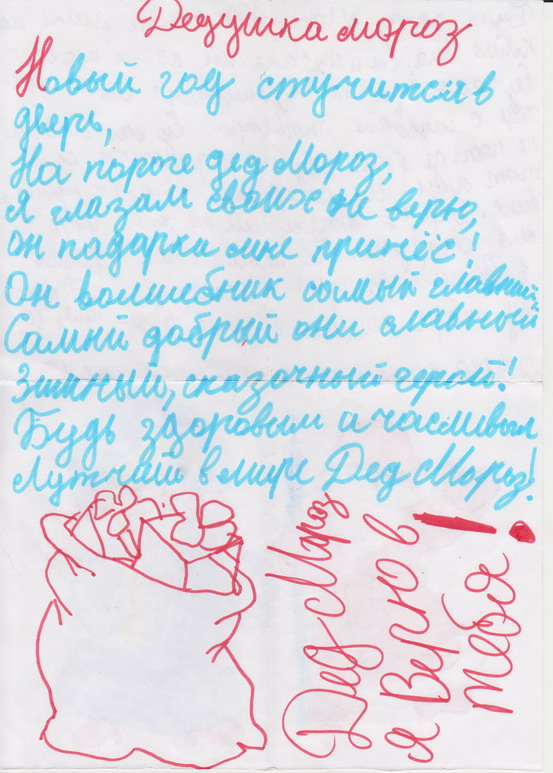 Дедушка мороз
Новый год стучится в
дверь,
На пороге дед Мороз,
Я глазам своих не верю,
он падарки мне принёс!
Он волшебник самый главный,
Самый добрый они славный
Зимный, сказочный герой!
Будь здоровым и часливым
Лутчий в мире Дед Мороз!
Дед Мороз
я Верю в
тебя!